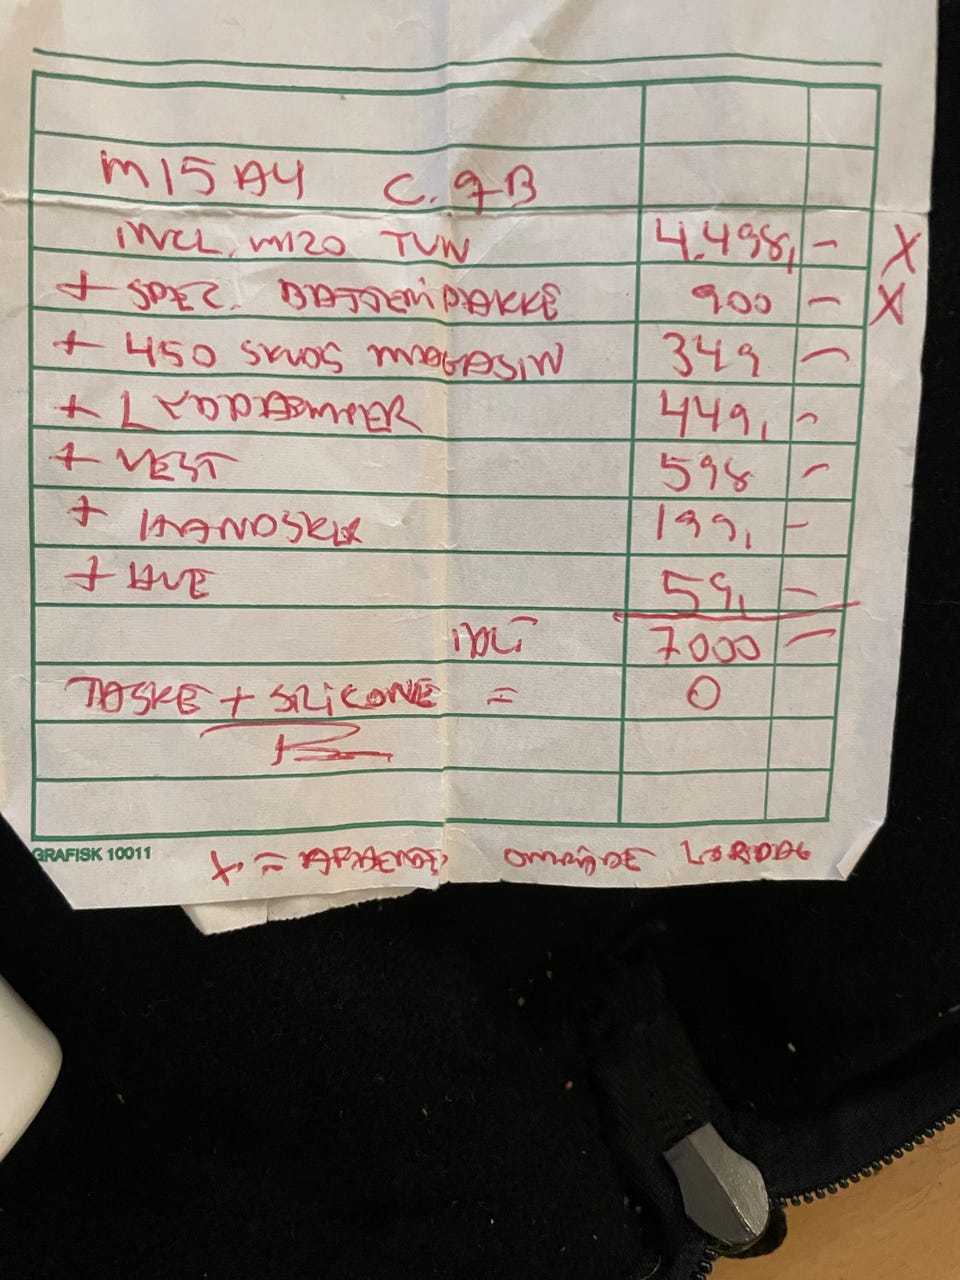 M15A4 C.QB
INCL. M120 TUN 4.498,- X
+ SPEC. BATTERIPAKKE 900 - X
+ 450 SKUDS MAGASIN 349 -
+ LYDDÆMPER 449,-
+ VEST 598 -
+ HANDSKER 199,-
+ HUE 59,-
IALT 7000 -
TASKE + SILICONE = 0
GRAFISK 10011
X = OMRÅDE LØRDAG